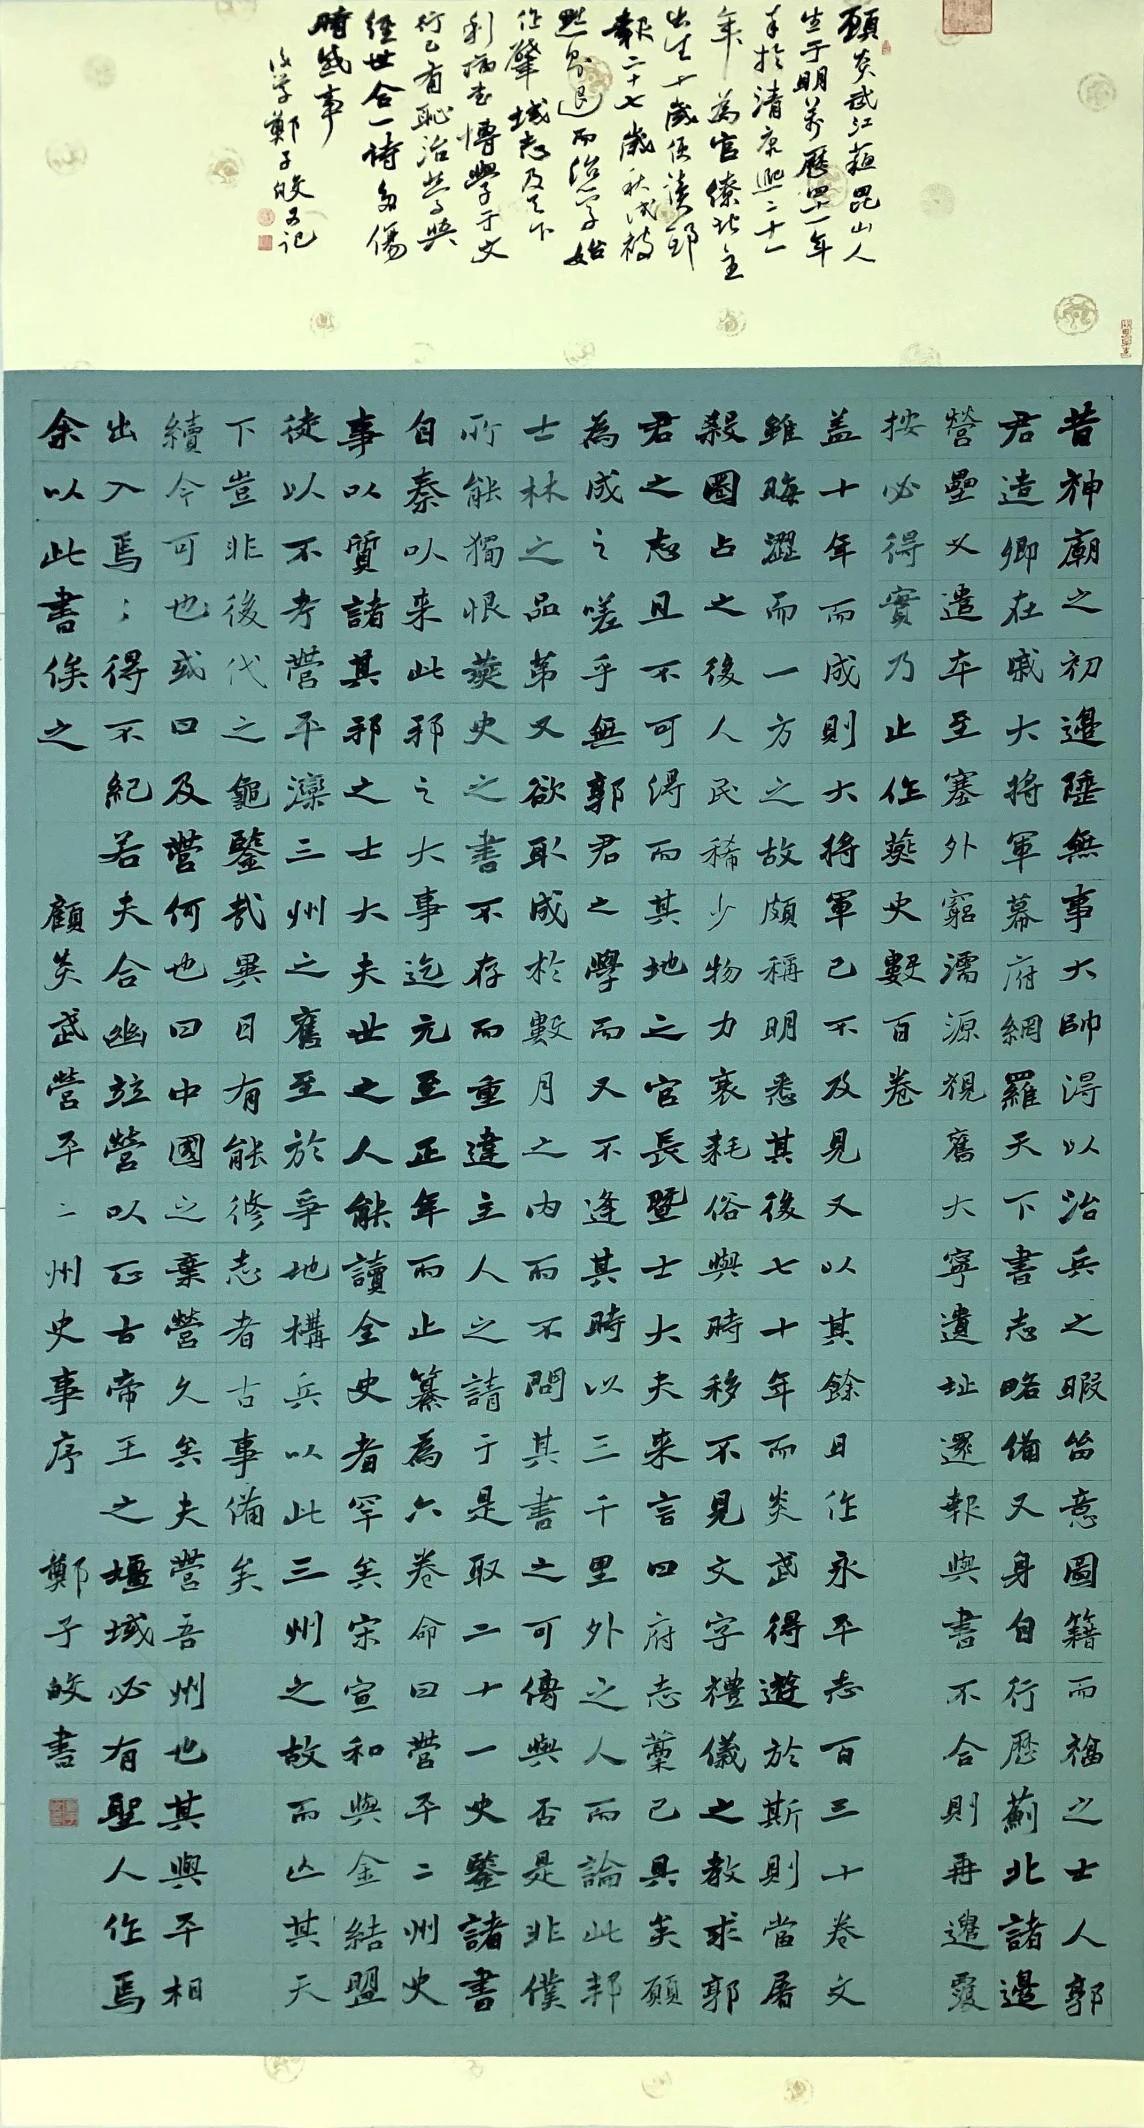 顧炎武江蘇昆山人
生于明萬曆四十一年
卒於清康熙二十一
年 為官僚地主
出生十歲便讀邸
報二十七歲秋試被
黜另退而治学始
作肇域志及天下
利病书博學于文
行己有恥治學與
經世合一詩多傷
時感事
後学鄭子皎又记
昔神廟之初邊陲無事大帥得以治兵之暇留意圖籍而福之士人郭
君造卿在戚大將軍幕府網羅天下書志略備又身自行歷薊北諸邊
營壘又遣卒至塞外窮濡源視舊大寧遺址還報與書不合則再遣覆
按必得實乃止作燕史數百卷
盖十年而成則大將軍已不及見又以其餘日作永平志百三十卷文
雖晦澀而一方之故頗稱明悉其後七十年而炎武得遊於斯則當屠
殺圈占之後人民稀少物力衰耗俗與時移不見文字禮儀之教求郭
君之志且不可得而其地之官長暨士大夫来言曰府志藁已具矣願
為成之嗟乎無郭君之學而又不逢其時以三千里外之人而論此邦
士林之品第又欲取成於數月之内而不問其書之可傳與否是非僕
所能獨恨燕史之書不存而重違主人之請于是取二十一史鑒諸書
自秦以来此邦之大事迄元至正年而止纂為六卷命曰營平二州史
事以質諸其邦之士大夫世之人能讀全史者罕矣宋宣和與金結盟
徒以不考營平灤三州之舊至於爭地構兵以此三州之故而亾其天
下豈非後代之龜鑒哉異日有能修志者古事備矣
續今可也或曰及營何也曰中國之棄營久矣夫營吾州也其與平相
出入焉〻得不紀若夫合幽竝營以正古帝王之壃域必有聖人作焉
余以此書俟之 顧炎武營平二州史事序 鄭子皎書